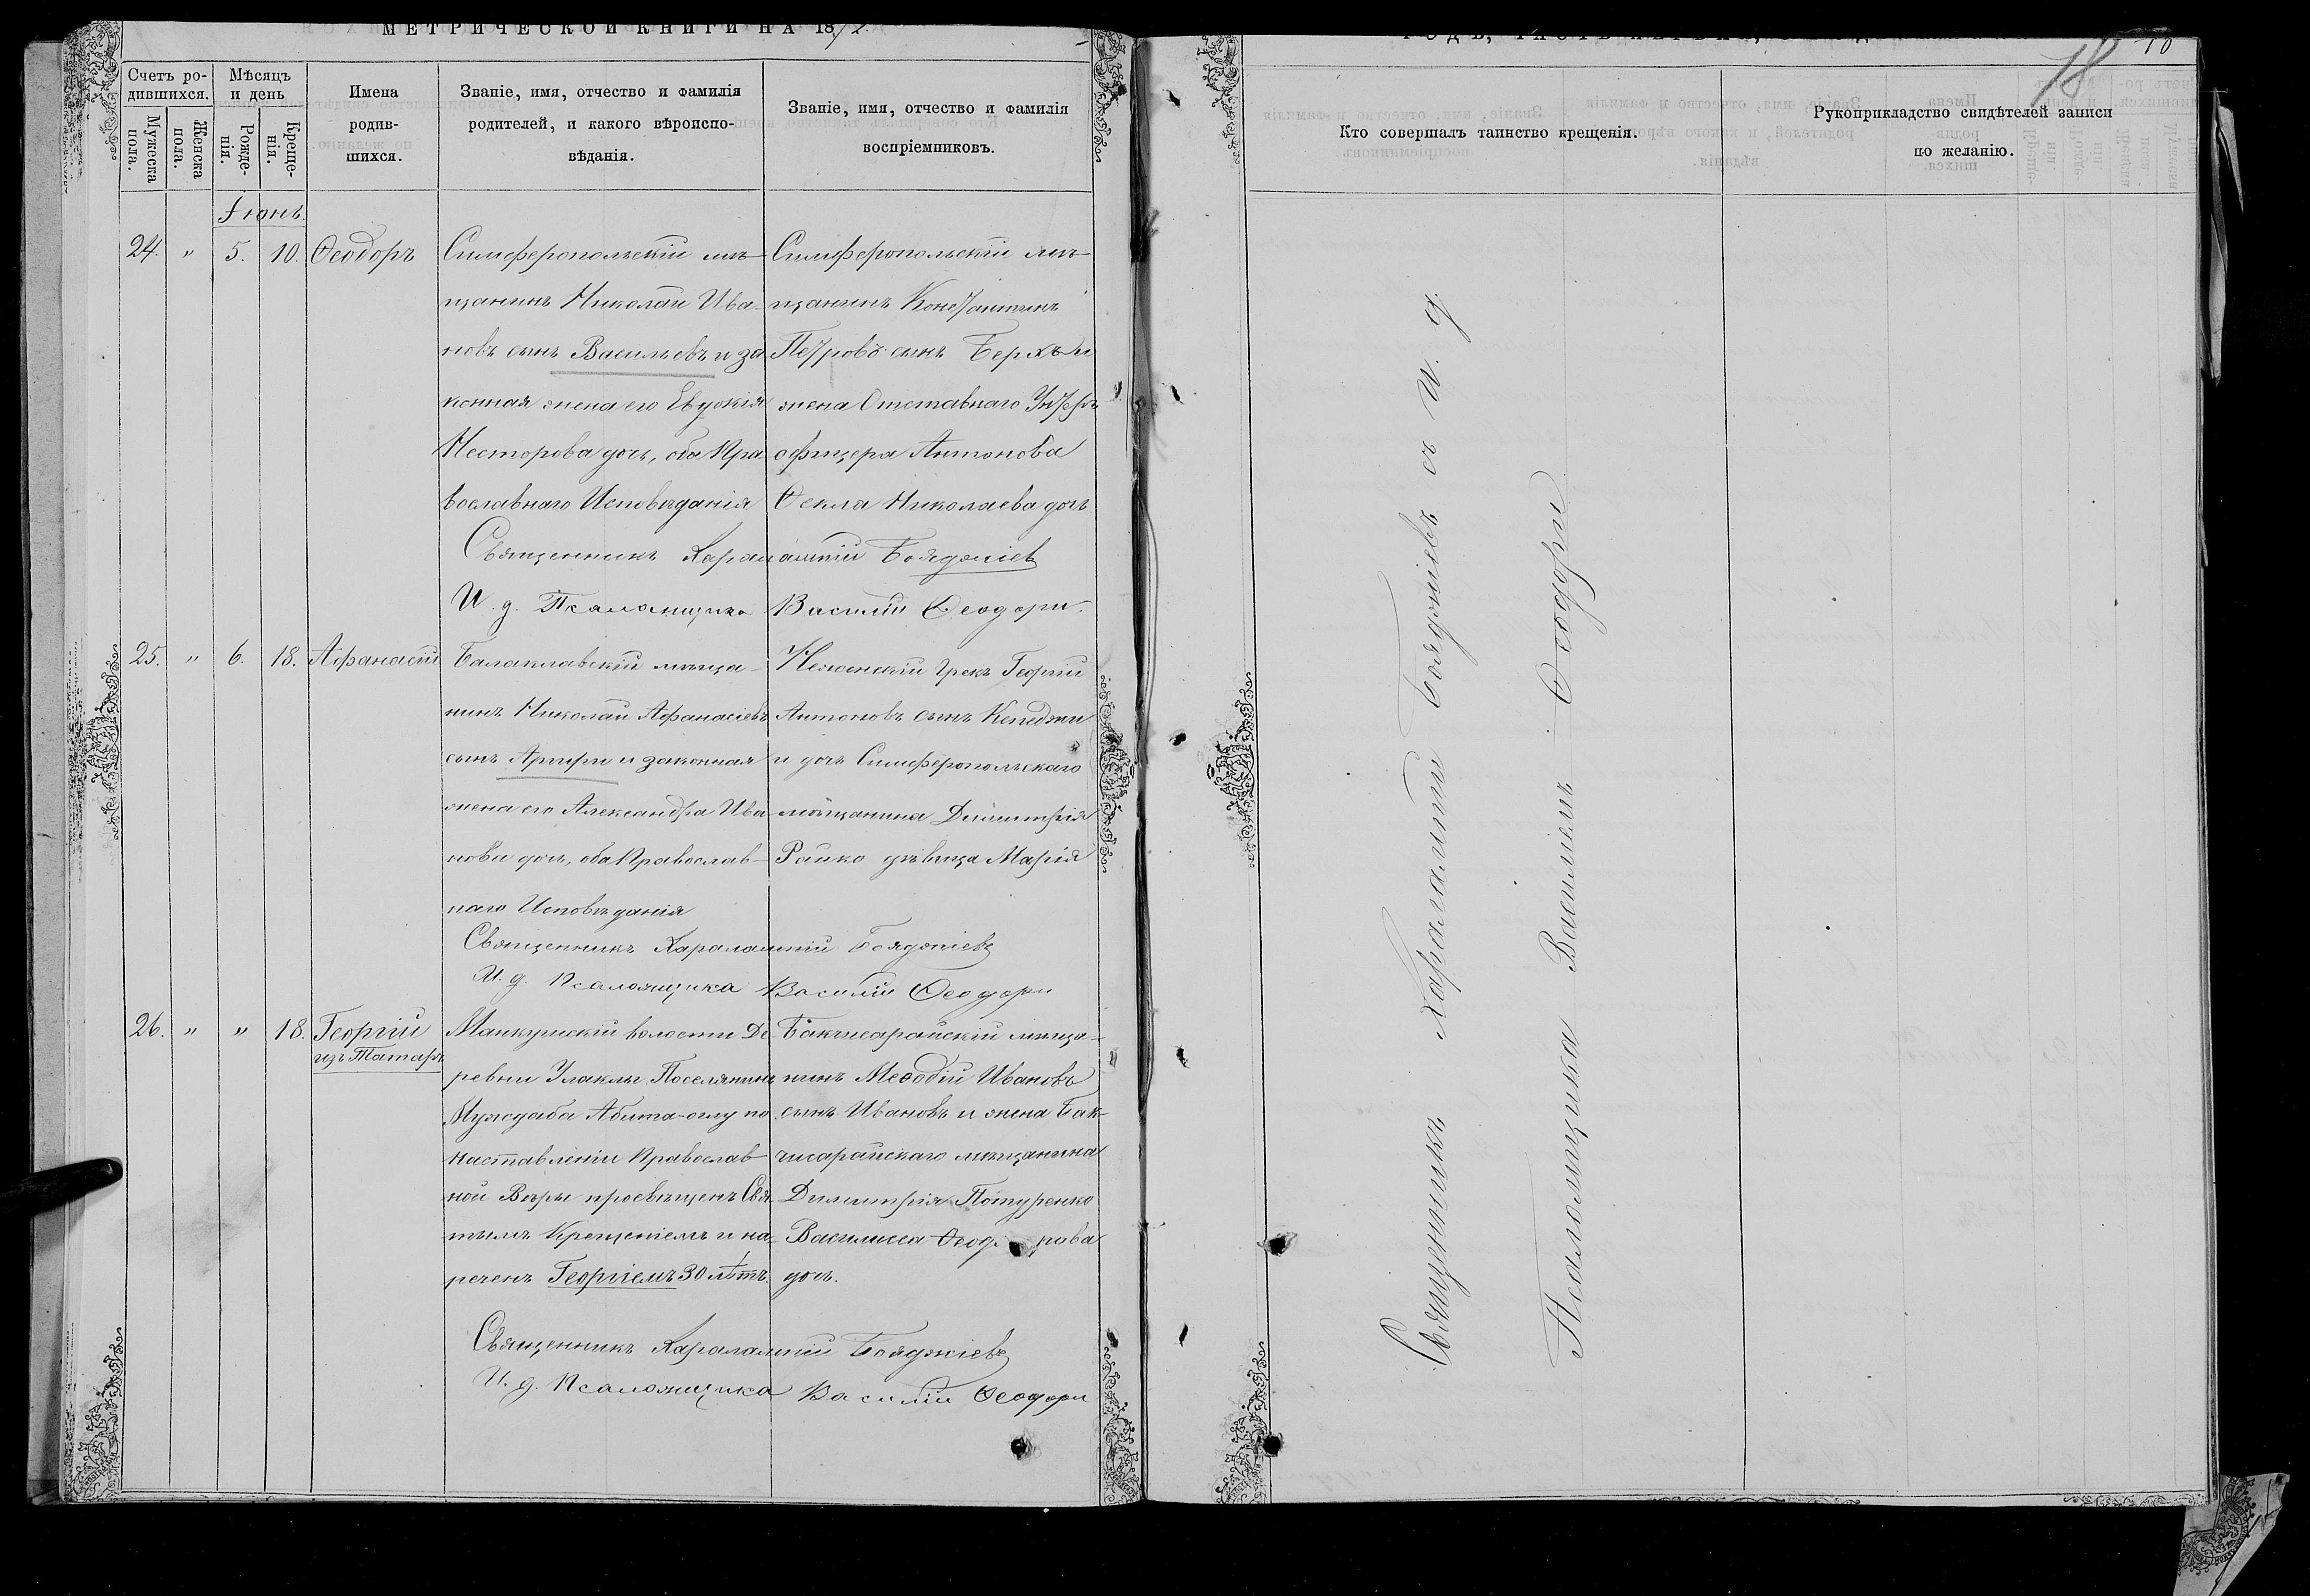 МЕТРИЧЕСКОЙ КНИГИ НА 1872
Счетъ ро-
дившихся.
Мужеска
пола.
Женска
пола.
Мѣсяцъ
и день
Рожде-
нія.
Креще-
нія.
Имена
родив-
шихся.
Званіе, имя, отчество и фамилія
родителей, и какого вѣроиспо-
вѣданія.
Званіе, имя, отчество и фамилія
воспріемниковъ.
Іюнь
24. " 5. 10. Ѳеодоръ
Симферопольскій мѣ-
щанинъ Николай Ива-
новъ сынъ Васильевъ и за
конная жена его Евдокія
Несторова дочь, оба Пра
вославнаго Исповѣданія
Симферопольскій мѣ-
щанинъ Константинъ
Петровъ сынъ Берхъ и
жена Отставнаго Унтеръ
офицера Антонова
Ѳекла Николаева дочь
Священникъ Харалампій Бояджіев
И. д. Псаломщика Василій Ѳеодори.
25. " 6. 18. Афанасій
Балаклавскій мѣща-
нинъ Николай Афанасіевъ
сынъ Аргири и законная
жена его Александра Ива
нова дочь, оба Православ-
наго Исповѣданія
Нѣженскій Грекъ Георгій
Антоновъ сынъ Кепеджи
и дочь Симферопольскаго
мѣщанина Димитрія
Райко дѣвица Марія
Священникъ Харалампій Бояджіевъ
И. д. Псаломщика Василій Ѳеодори
26. " " 18. Георгій
изъ Татаръ
Мангушскій волости Де
ревни Улаклы Поселянинъ
Муждаба Абита-оглу по
наставленіи Православ
ной Вѣры просвѣщенъ Свя
тымъ Крещеніемъ и на
реченъ Георгіемъ 30 лѣтъ
Бакчисарайскій мѣща-
нинъ Меѳодій Ивановъ
сынъ Ивановъ и жена Бак-
чисарайскаго мѣщанина
Димитрія Потуренко
Василисса Ѳеодорова
дочь.
Священникъ Харалампій Бояджіевъ
И. д. Псаломщика Василій Ѳеодори
18
Кто совершалъ таинство крещенія.
Рукоприкладство свидѣтелей записи
по желанію.
Священникъ Харалампій Бояджіевъ съ И. д.
Псаломщика Василіемъ Ѳеодори